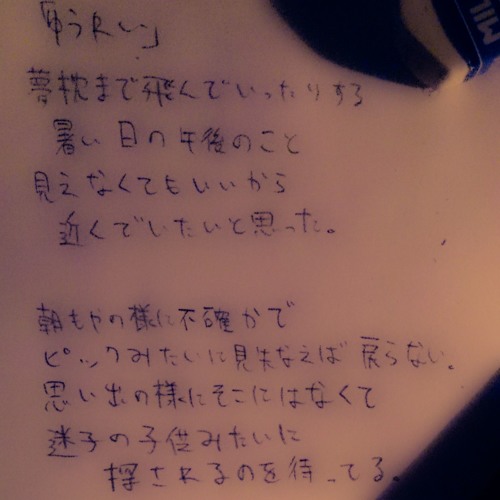 「ゆうれい」
夢枕まで飛んでいったりする
暑い日の午後のこと
見えなくてもいいから
近くでいたいと思った。
朝もやの様に不確かで
ピックみたいに見失なえば戻らない。
思い出の様にそこにはなくて
迷子の子供みたいに
探されるのを待ってる。
MIL